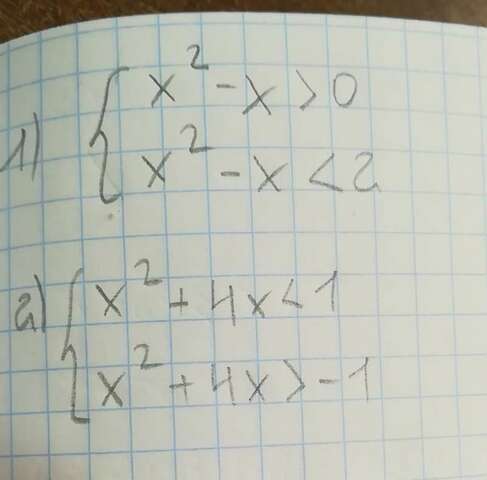 1) { x² - x > 0
x² - x < 2
2) { x² + 4x < 1
x² + 4x > -1